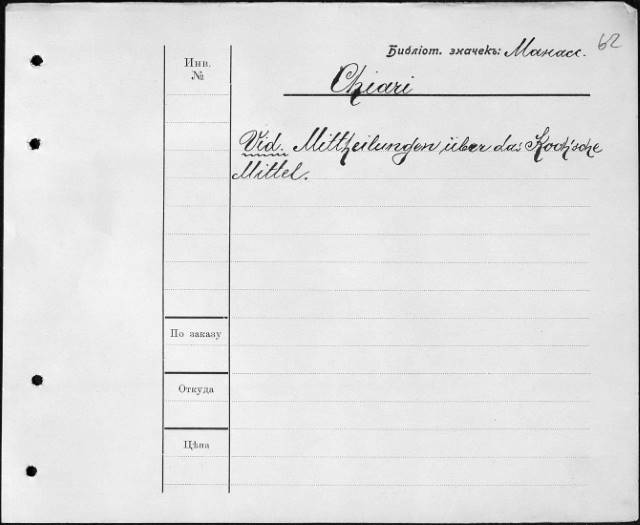 Библіот. значекъ: Манасс. 62
Инв.
№
Chiari
Vid. Mittheilungen über das Koch'sche
Mittel.
По заказу
Откуда
Цѣна